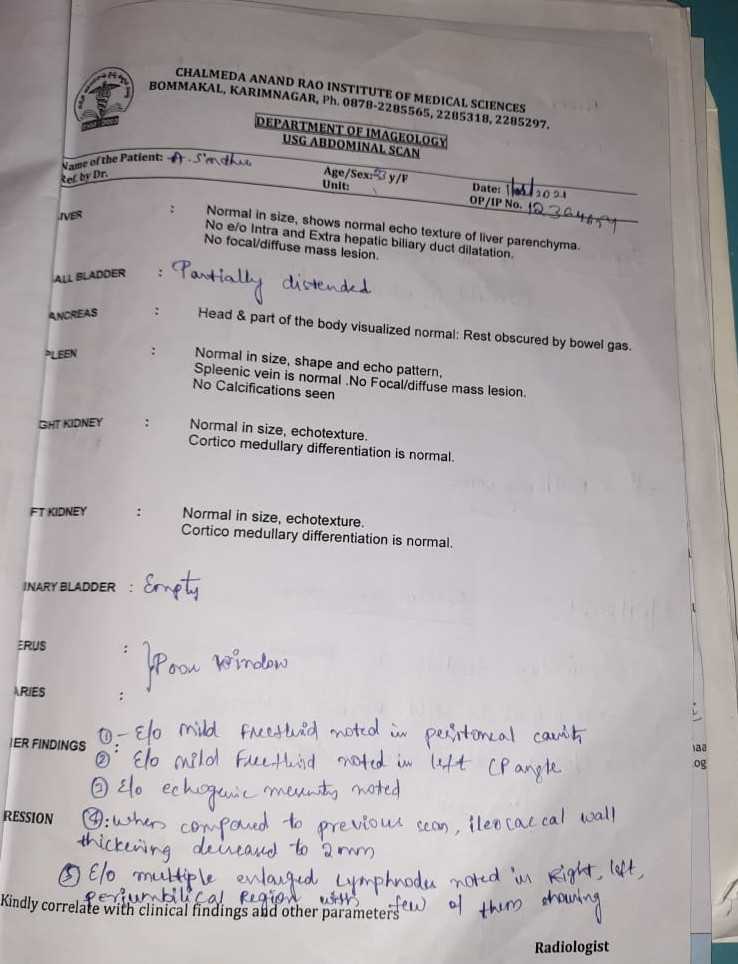 CHALMEDA ANAND RAO INSTITUTE OF MEDICAL SCIENCES
BOMMAKAL, KARIMNAGAR, Ph. 0878-2285565, 2285318, 2285297.
DEPARTMENT OF IMAGEOLOGY
USG ABDOMINAL SCAN
Name of the Patient: A. Sindhu Age/Sex: y/F Date: 2021
Ref. by Dr. Unit: OP/IP No.
IVER : Normal in size, shows normal echo texture of liver parenchyma.
No e/o Intra and Extra hepatic biliary duct dilatation.
No focal/diffuse mass lesion.
ALL BLADDER : Partially distended
ANCREAS : Head & part of the body visualized normal: Rest obscured by bowel gas.
PLEEN : Normal in size, shape and echo pattern,
Spleenic vein is normal .No Focal/diffuse mass lesion.
No Calcifications seen
GHT KIDNEY : Normal in size, echotexture.
Cortico medullary differentiation is normal.
FT KIDNEY : Normal in size, echotexture.
Cortico medullary differentiation is normal.
INARY BLADDER : Empty
ERUS :
} Poor window
ARIES :
IER FINDINGS : ① - E/o mild free fluid noted in peritoneal cavity
② E/o mild free fluid noted in left CP angle
③ E/o echogenic mesentry noted
RESSION ④: when compared to previous scan, ileocaecal wall
thickening decreased to 2mm
⑤ E/o multiple enlarged lymphnodes noted in Right, left,
periumbilical Region with few of them showing
Kindly correlate with clinical findings and other parameters
Radiologist